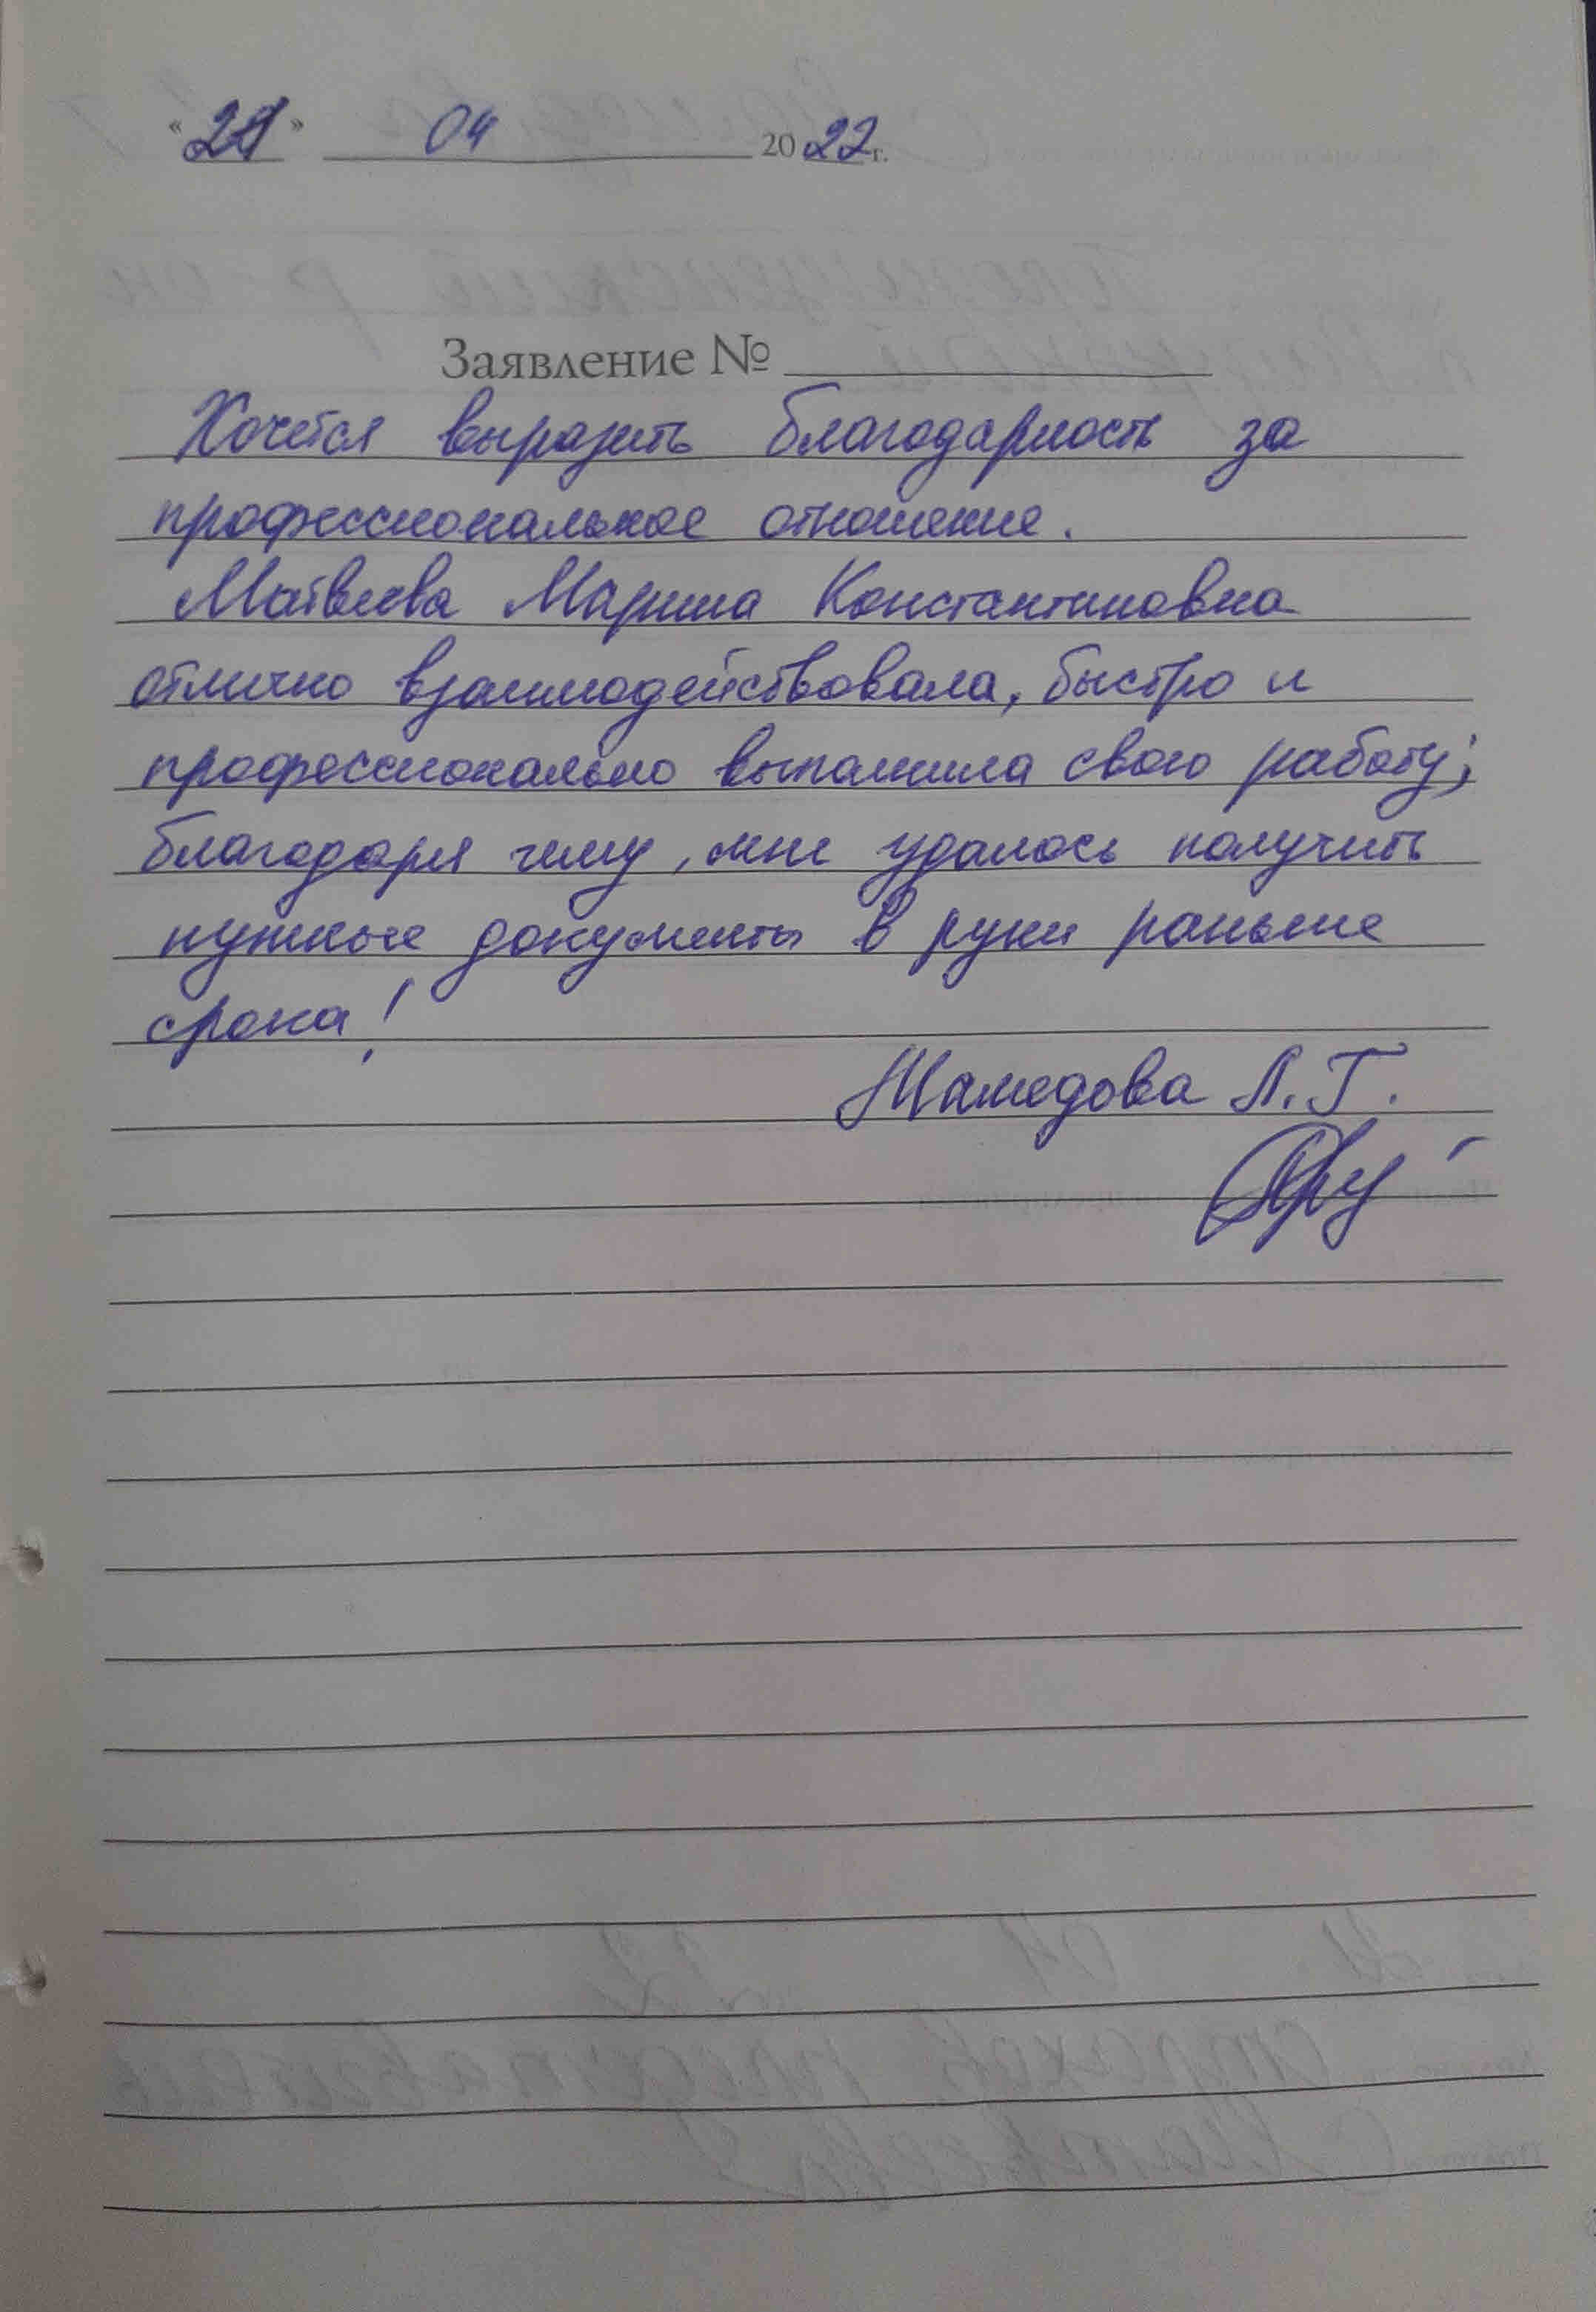 «21» 04 2022 г.
Заявление №
Хочется выразить благодарность за
профессиональное отношение.
Матвеева Марина Константиновна
отлично взаимодействовала, быстро и
профессионально выполнила свою работу;
благодаря чему, мне удалось получить
нужные документы в руки раньше
срока!
Мамедова Л.Г.